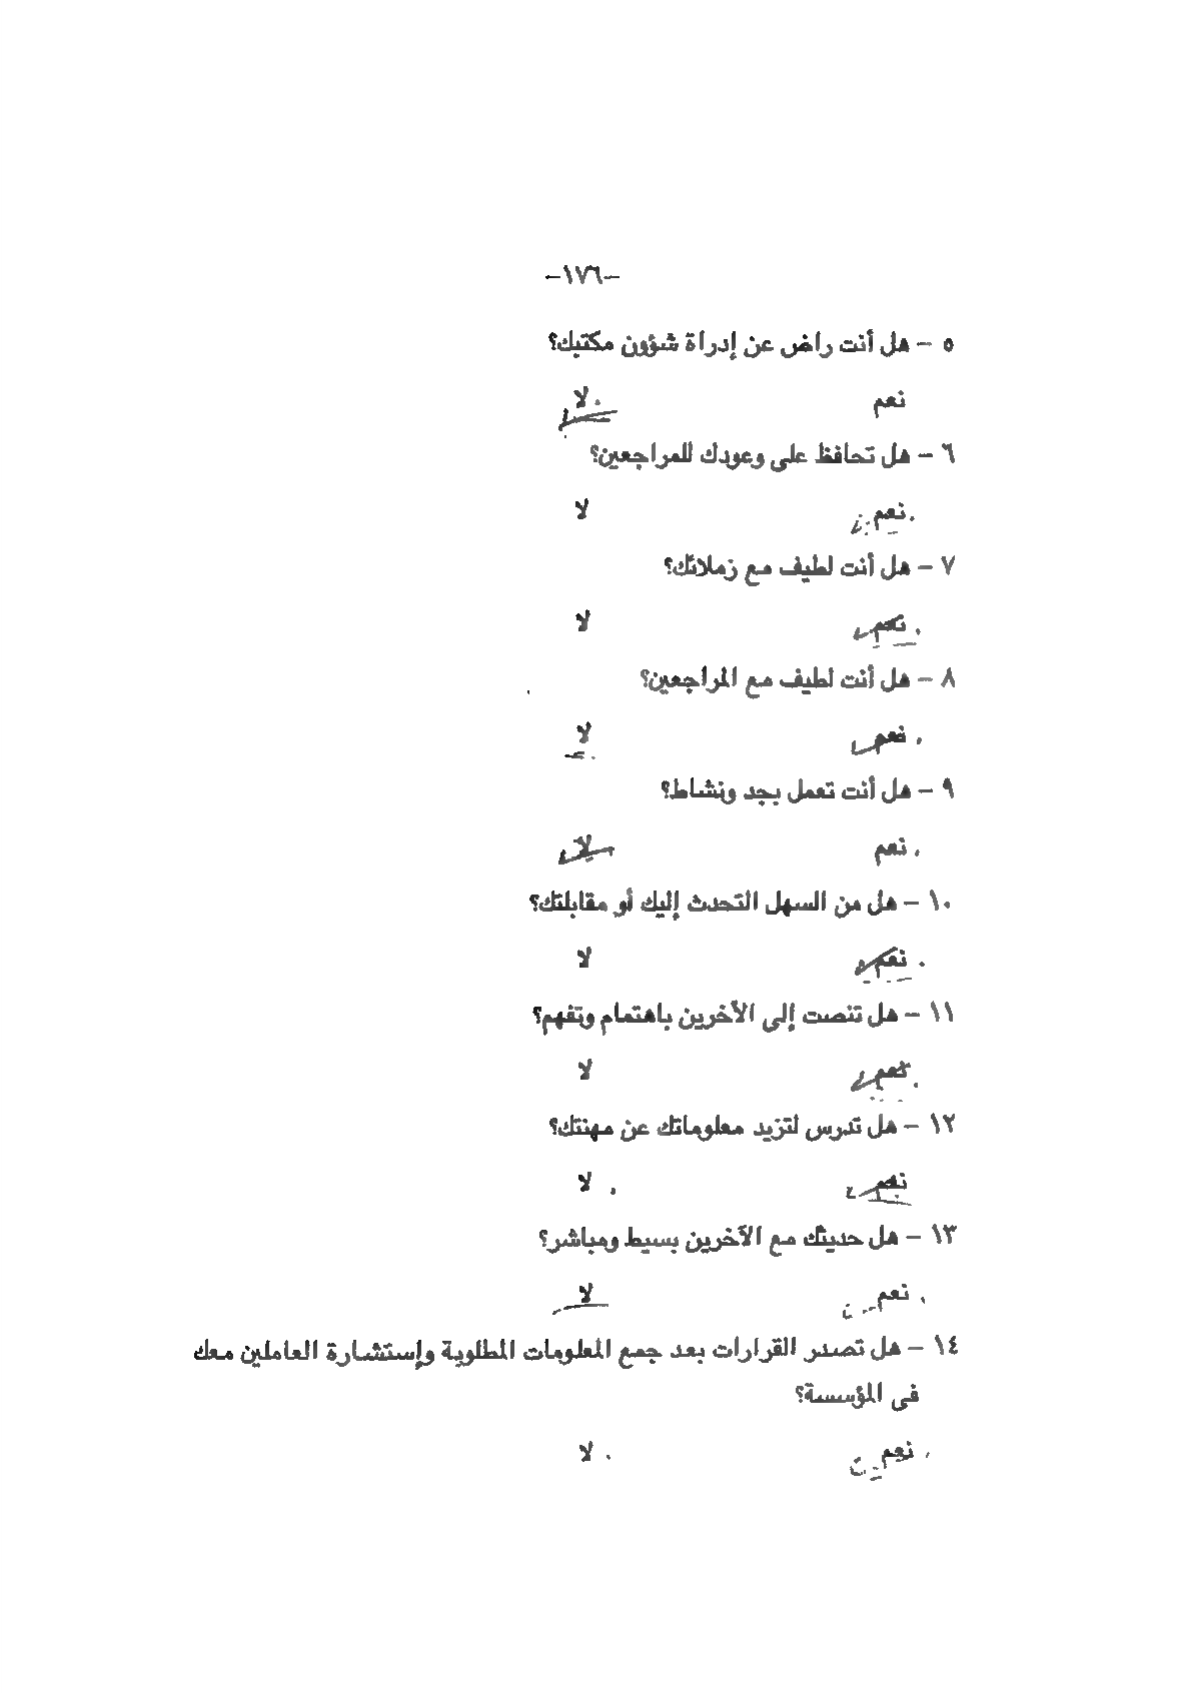 -١٧٦-
٥ - هل أنت راض عن إدراة شؤون مكتبك؟
نعم لا
٦ - هل تحافظ على وعودك للمراجعين؟
نعم لا
٧ - هل أنت لطيف مع زملائك؟
نعم لا
٨ - هل أنت لطيف مع المراجعين؟
نعم لا
٩ - هل أنت تعمل بجد ونشاط؟
نعم لا
١٠ - هل من السهل التحدث إليك أو مقابلتك؟
نعم لا
١١ - هل تنصت إلى الآخرين باهتمام وتفهم؟
نعم لا
١٢ - هل تدرس لتزيد معلوماتك عن مهنتك؟
نعم لا
١٣ - هل حديثك مع الآخرين بسيط ومباشر؟
نعم لا
١٤ - هل تصدر القرارات بعد جمع المعلومات المطلوبة وإستشارة العاملين معك
فى المؤسسة؟
نعم لا